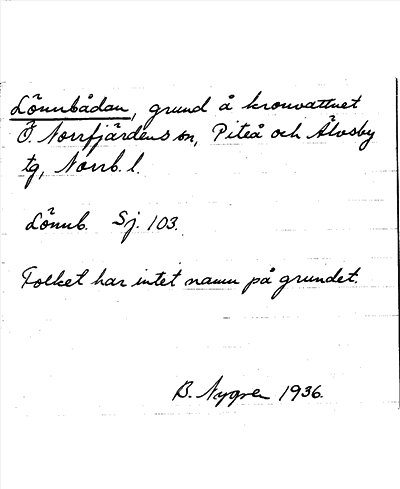 Lönnbådan, grund å kronvattnet
Ö. Norrfjärdens sn, Piteå och Älvsby
tg, Norrb. l.
Lönnb. Sj. 103.
Folket har intet namn på grundet.
B. Nygren 1936.